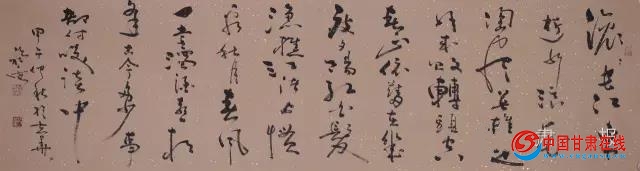 滚滚长江東
逝水浪花
淘尽英雄是
非成敗轉頭空
青山依舊在几
度夕陽紅白髮
渔樵江渚上慣
看秋月春风
一壶濁酒喜相
逢古今多少事
都付笑談中
甲午仲秋於京華
中国甘肃在线